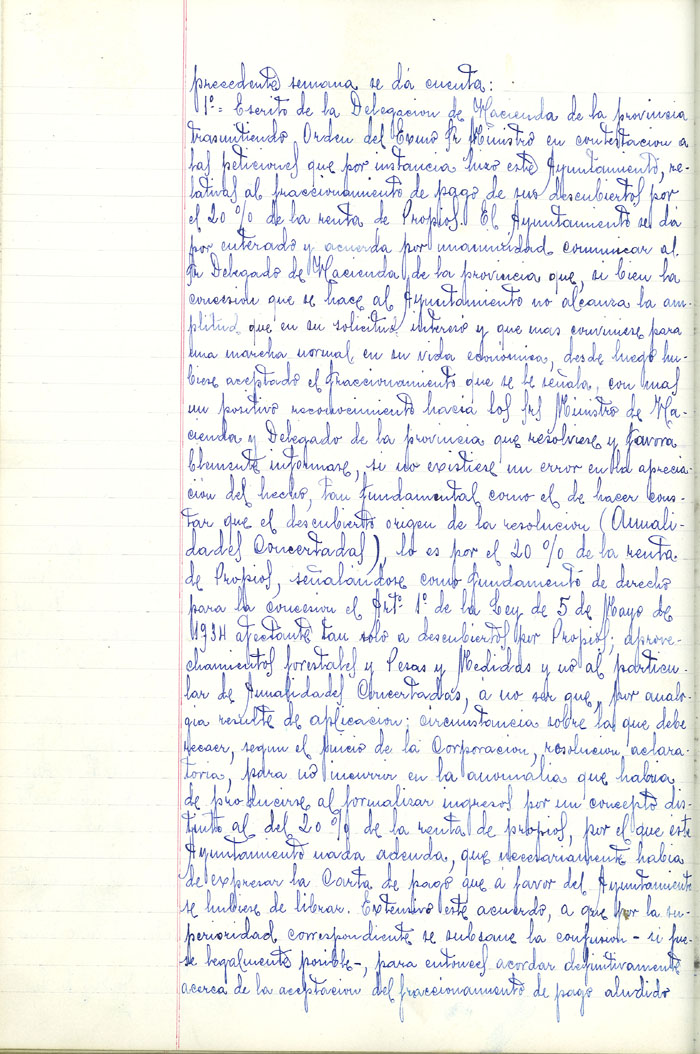 precedente semana se dá cuenta:
1º = Escrito de la Delegacion de Hacienda de la provincia
trasmitiendo Orden del Exmo Sr Ministro en contestacion a
las peticiones que por instancia hizo este Ayuntamiento, re-
lativas al fraccionamiento de pago de sus descubiertos por
el 20 % de la renta de Propios. El Ayuntamiento se dá
por enterado y acuerda por unanimidad comunicar al
Sr Delegado de Hacienda de la provincia que, si bien la
concesion que se hace al Ayuntamiento no alcanza la am-
plitud que en su solicitud interesó y que mas conviniese para
una marcha normal en su vida economica, desde luego hu-
biese aceptado el fraccionamiento que se le señala, con mas
un positivo reconocimiento hacia los Srs Ministro de Ha-
cienda y Delegado de la provincia que resolviese y favora
blemente informase, si no existiese un error en la aprecia-
ción del hecho, tan fundamental como el de hacer cons-
tar que el descubierto origen de la resolucion (Anuali-
dades Concertadas), lo es por el 20 % de la renta
de Propios, señalándose como fundamento de derecho
para la concesion el Artº 1º de la Ley de 5 de Mayo de
1934 afectante tan solo a descubiertos por Propios; aprove-
chamientos forestales y Pesas y Medidas y no al particu-
lar de Anualidades Concertadas, á no ser que, por analo-
gia resulte de aplicacion; circunstancia sobre la que debe
recaer, segun el juicio de la Corporacion, resolucion aclara-
toria, para no incurrir en la anomalia que habria
de producirse al formalizar ingresos por un concepto dis-
tinto al del 20 % de la renta de propios, por el que este
Ayuntamiento nada adeuda, que necesariamente habia
de expresar la Carta de pago que á favor del Ayuntamiento
se hubiese de librar. Extensivo este acuerdo, a que por la su-
perioridad correspondiente se subsane la confusion - si fue-
se legalmente posible -, para entonces acordar definitivamente
acerca de la aceptacion del fraccionamiento de pago aludido